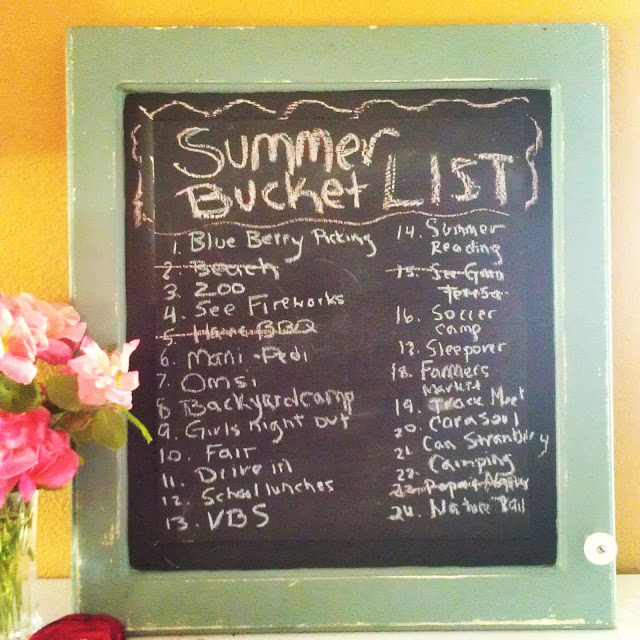 Summer
Bucket LIST
1. Blue Berry Picking
2. Beach
3. Zoo
4. See Fireworks
5. Have BBQ
6. Mani-Pedi
7. Omsi
8 Backyardcamp
9. Girls night out
10. Fair
11. Drive in
12. School lunches
13. VBS
14. Summer
Reading
15. See Gma
Teresa
16. Soccer
camp
17. Sleepover
18. Farmers
Market
19. Track Meet
20. Carasoul
21. Can Strawberry
22. Camping
23.
24. Nature Trail